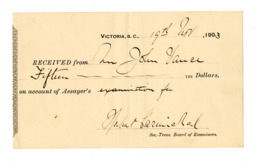 VICTORIA, B.C., 19th Nov 1903
RECEIVED from Mr John Vance
Fifteen 100 Dollars,
on account of Assayer's examination fee
Herbert Carmichael
Sec.-Treas. Board of Examiners.